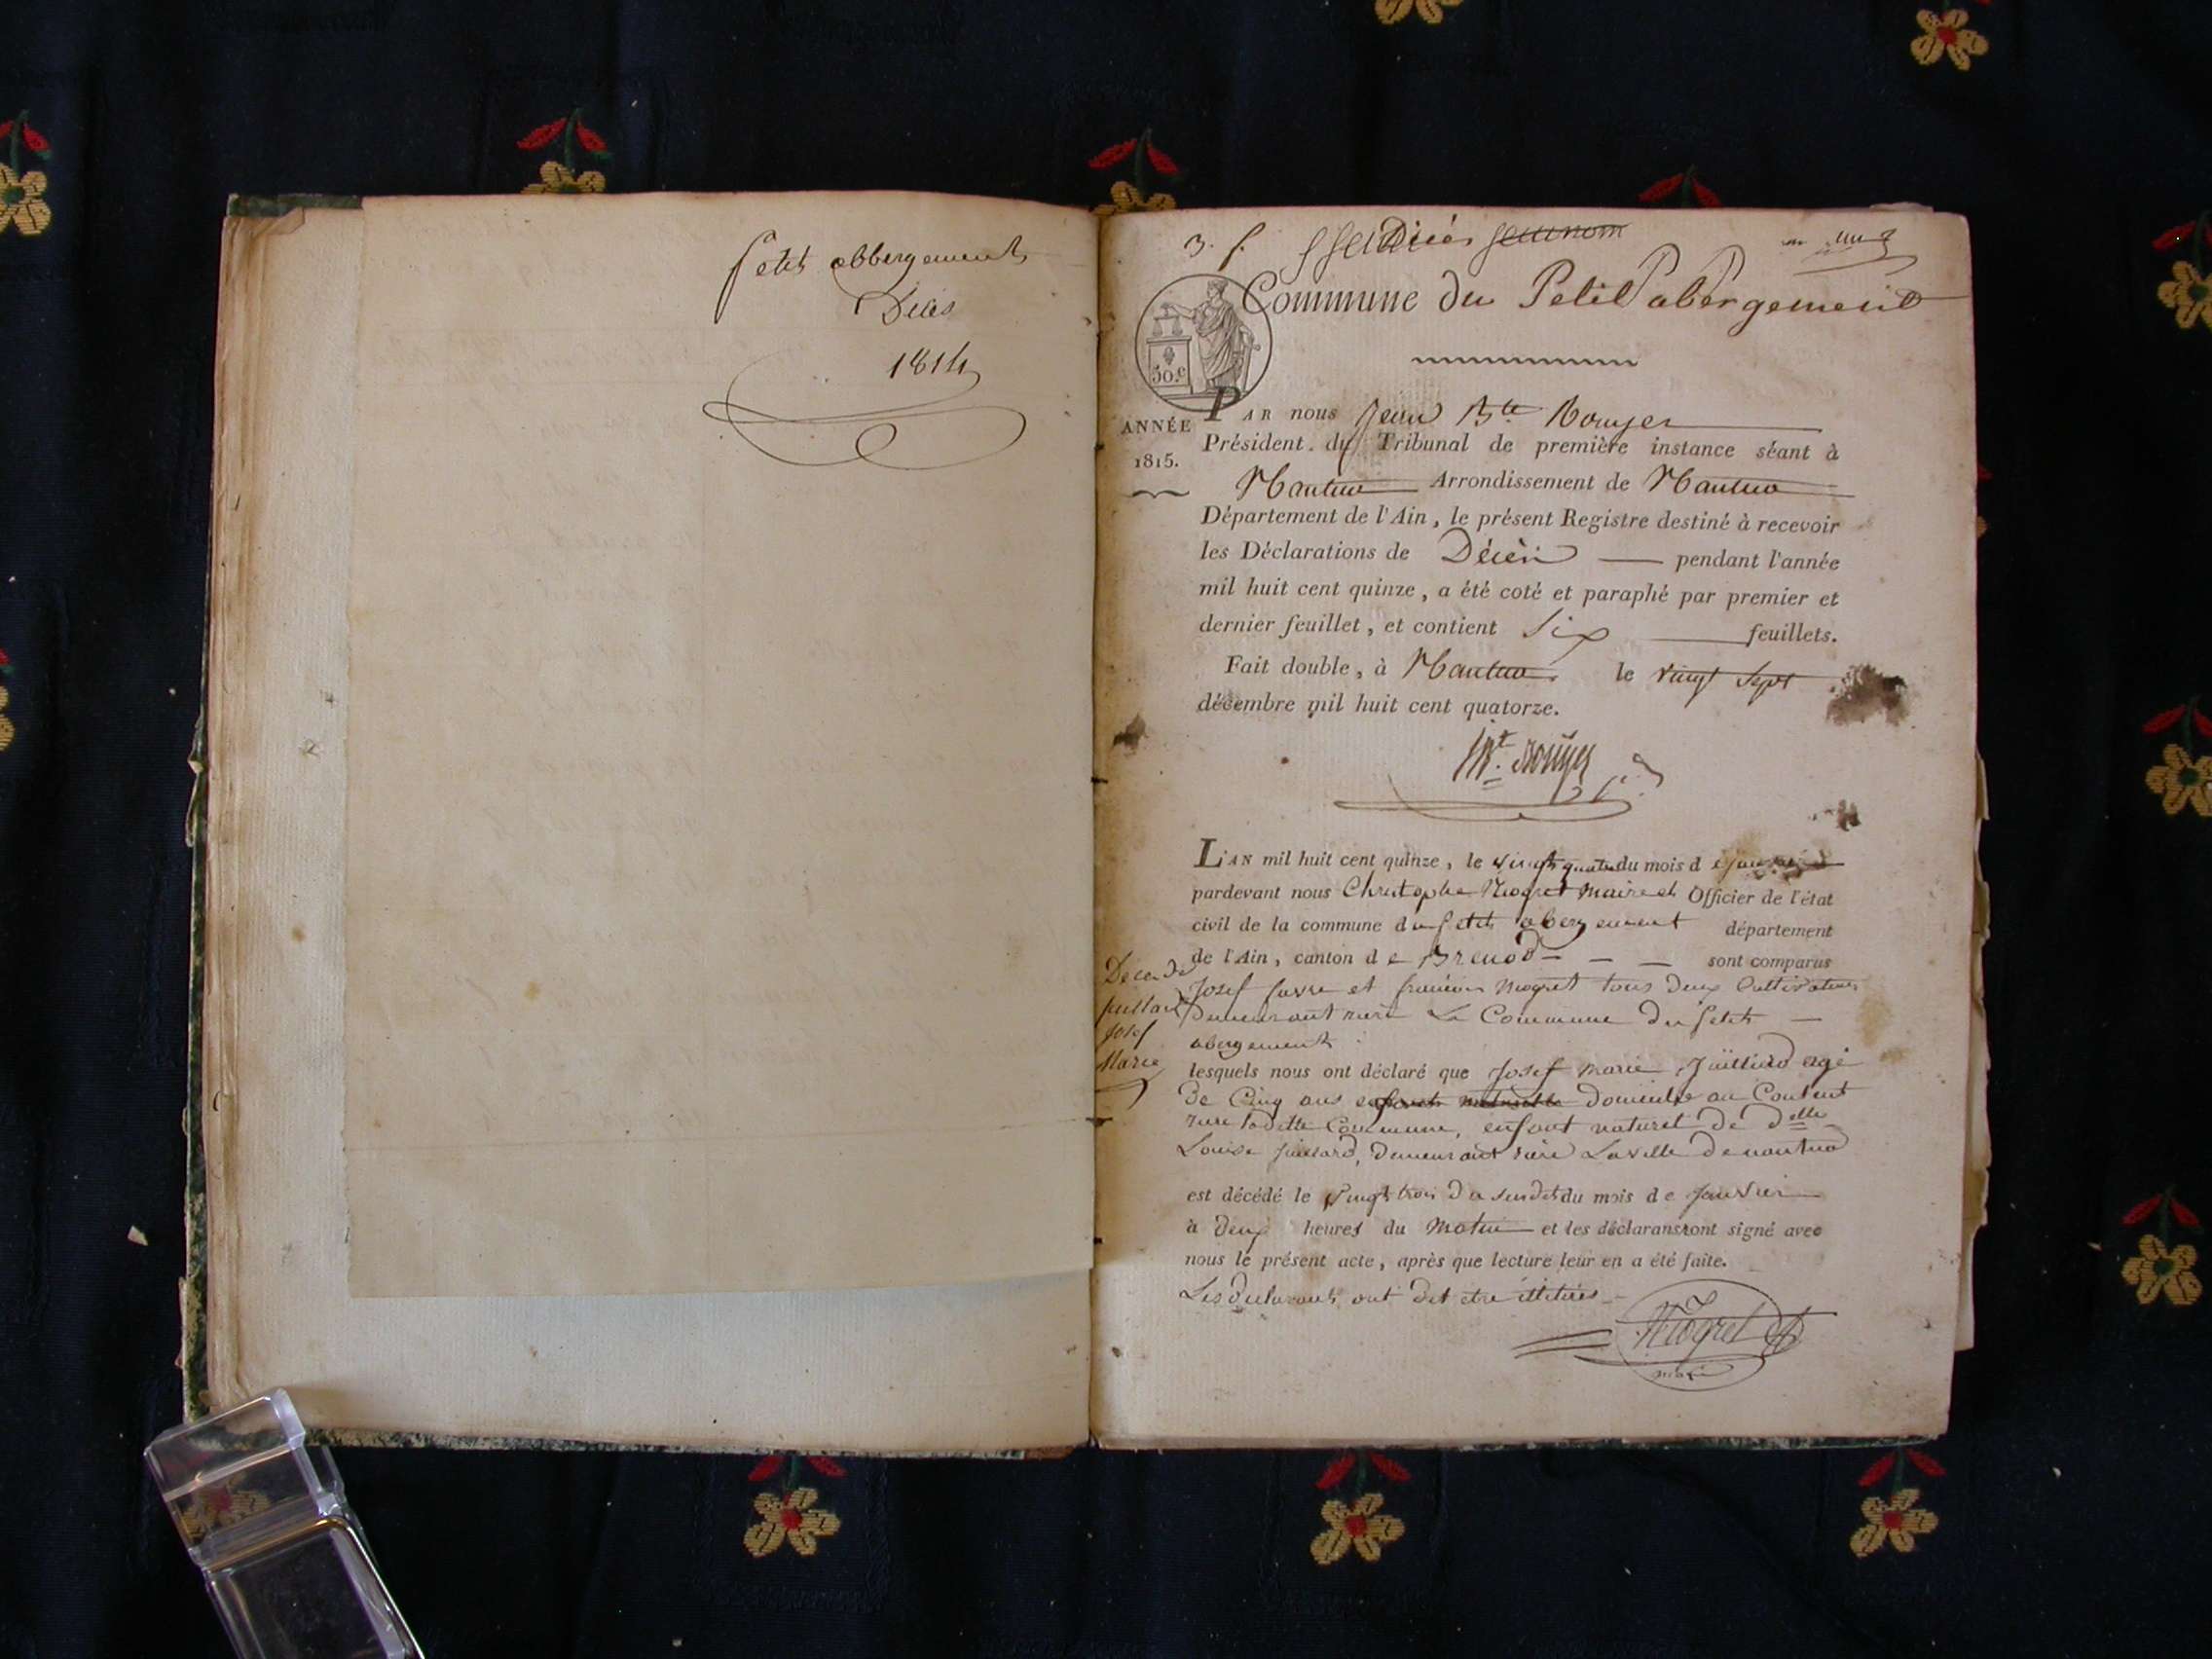 Petit abbergement
Décès
1814
3. f.
Commune du Petit abergement
50.c
ANNÉE
1815.
PAR nous Jean Bte Rouyer
Président du Tribunal de première instance séant à
Nantua Arrondissement de Nantua
Département de l'Ain, le présent Registre destiné à recevoir
les Déclarations de Décès pendant l'année
mil huit cent quinze, a été coté et paraphé par premier et
dernier feuillet, et contient Six feuillets.
Fait double, à Nantua le vingt sept
décembre mil huit cent quatorze.
Bt. Rouyer
L'AN mil huit cent quinze, le vingt quatre du mois de janvier
pardevant nous Christophe Niogret maire et Officier de l'état
civil de la commune du petit abergement département
de l'Ain, canton de Brenod sont comparus
Josef favre et françois Niogret tous deux Cultivateurs
Demeurant rière La Commune du petit
abergement
Décès de
juillard
Josef
Marie
lesquels nous ont déclaré que Josef marie Juilliard agé
de Cinq ans enfant naturelle Domicilié au Content
rière ladette Commune, enfant naturel de delle
Louise juillard, demeurant rière Laville de nantua
est décédé le vingt trois du susdit du mois de janvier
à deux heures du matin et les déclarans ont signé avec
nous le présent acte, après que lecture leur en a été faite.
Les déclarants ont dit etre illitérés
Niogret
maire